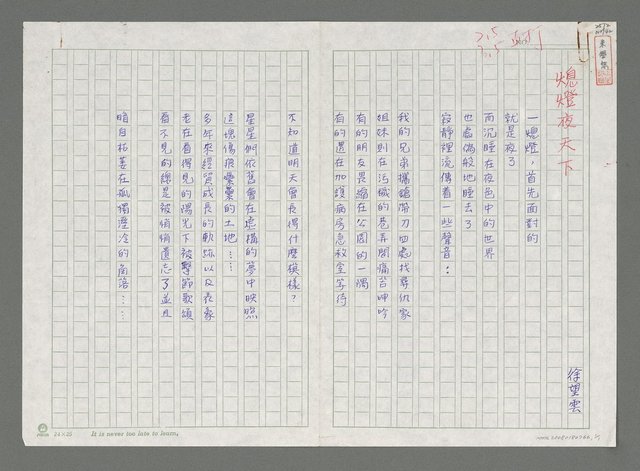 熄燈夜天下
徐望雲
一熄燈，首先面對的
就是夜了
而沉睡在夜色中的世界
也虛偽般地睡去了
寂靜裡流傳着一些聲音：
我的兄弟攜槍帶刀四處找尋仇家
姐妹則在污穢的巷弄間痛苦呻吟
有的朋友畏縮在公園的一隅
有的還在加護病房急救室等待
不知道明天會長得什麼模樣？
星星們依舊會在虛構的夢中映照
這塊傷痕纍纍的土地……
多年來經貿成長的軌跡以及表象
老在看得見的陽光下被擊節歌頌
看不見的總是被悄悄遺忘了並且
暗自枯萎在孤獨溼冷的角落……
24×25
It is never too late to learn.